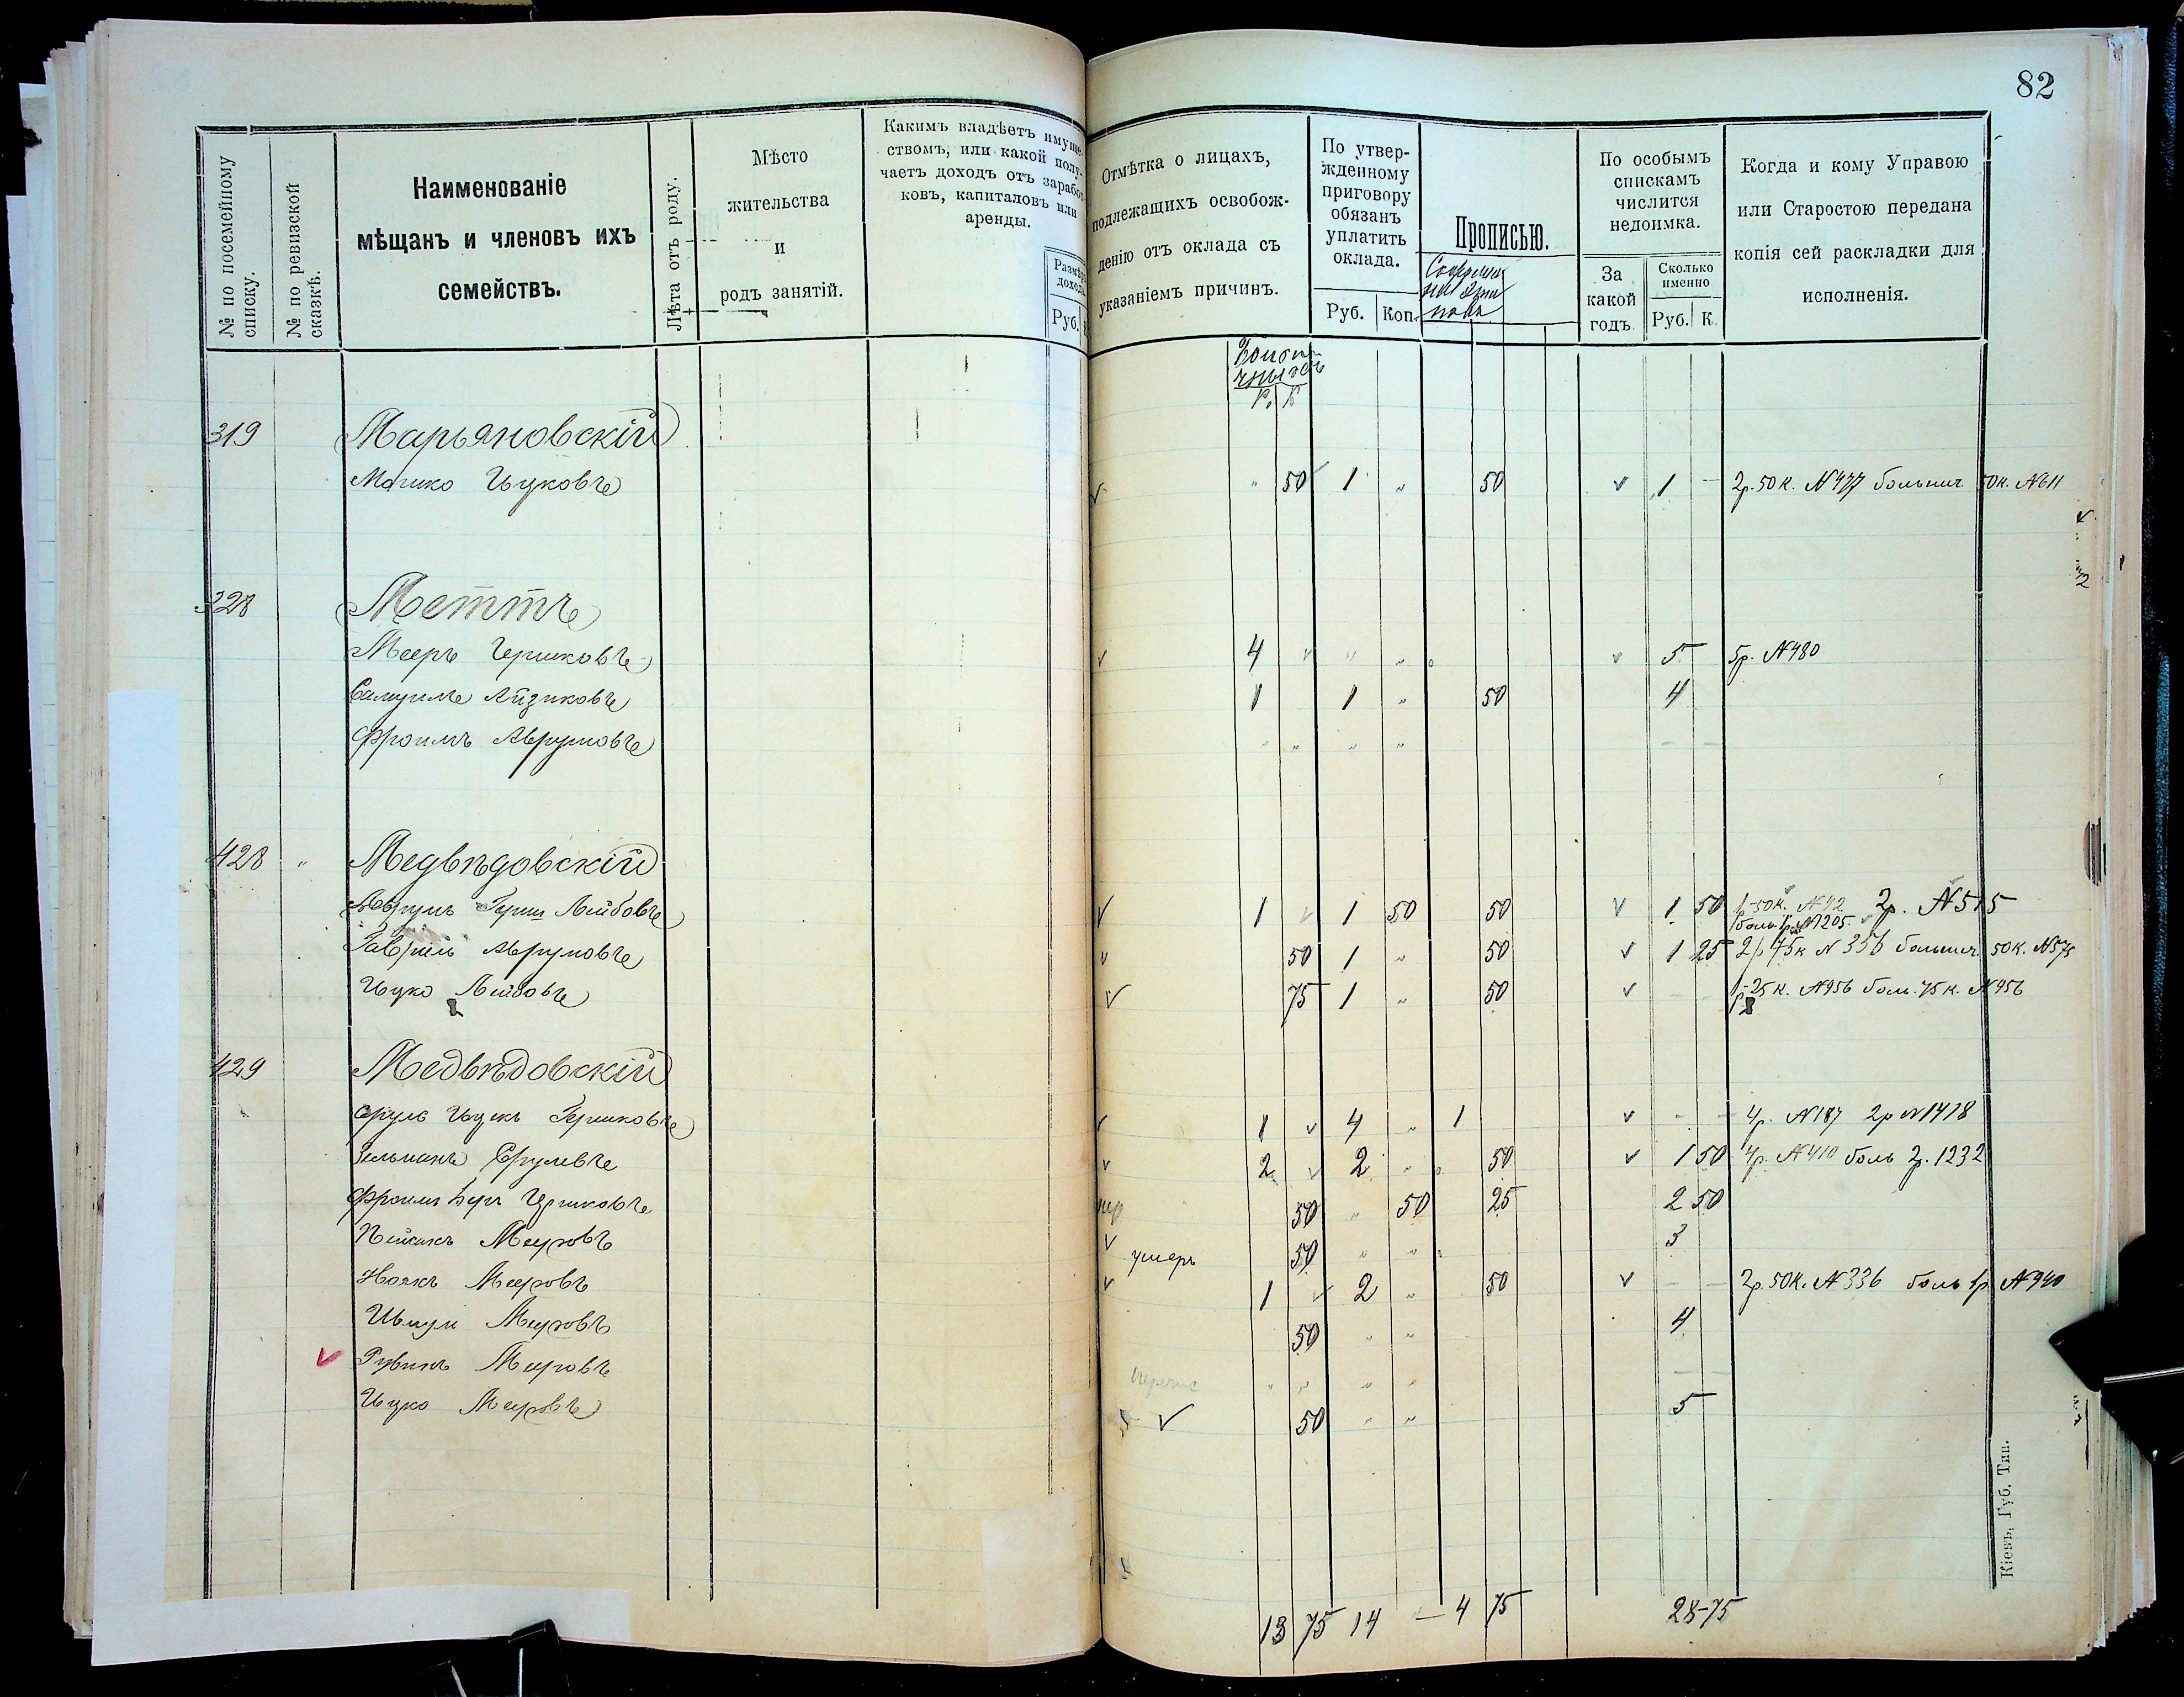 82
№ по посемейному списку.
№ по ревизской сказкѣ.
Наименованіе
мѣщанъ и членовъ ихъ
семействъ.
Лѣта отъ роду.
Мѣсто
жительства
и
родъ занятій.
Какимъ владѣетъ имуще-
ствомъ, или какой полу-
чаетъ доходъ отъ заработ-
ковъ, капиталовъ или
аренды.
Размѣръ дохода.
Руб.
Отмѣтка о лицахъ,
подлежащихъ освобож-
денію отъ оклада съ
указаніемъ причинъ.
По утвер-
жденному
приговору
обязанъ
уплатить
оклада.
Руб. Коп.
Прописью.
По особымъ
спискамъ
числится
недоимка.
За
какой
годъ.
Сколько
именно
Руб. К.
Когда и кому Управою
или Старостою передана
копія сей раскладки для
исполненія.
Р. К
319 Марьяновскій
Мошко Ицковъ 50 1 " 50 1 - 2р. 50 к. № 477 больнич 50к. №611
328 Меттъ
Мееръ Гершковъ 4 " " 5 5р. №480
Самуилъ Айзиковъ 1 1 " 50 4
Фроимъ Аврумовъ " " " " - -
428 " Медвѣдовскій
Аврумъ Герш Лейбовъ 1 1 50 50 1 50 1р-50к. №42 2р. №515
боль 1р №1205.
Гавріилъ Аврумовъ 50 1 " 50 1 25 2р 75к № 356 больнич. 50к. №575
Ицко Лейбовъ 75 1 " 50 - - 1р-25 к. №956 боль. 75 к. №956
429 Медвѣдовскій
Сруль Ицекъ Гершковъ 1 4 " 1 - - 4р. №187 2р №1418
Зельманъ Срулевъ 2 2 " 50 1 50 4р. №410 боль 2р. 1232
Фроимъ Беръ Гершковъ 50 " 50 25 2 50
Пейсахъ Мееровъ умеръ 50 " " 3
Нояхъ Мееровъ 1 2 " 50 - - 2р. 50к. №336 боль 1р №940
Мееровъ 50 " " 4
Рувинъ Мееровъ " " " " - -
Ицко Мееровъ 50 " " 5
13 75 14 - 4 75 28-75
Кіевъ, Губ. Тип.